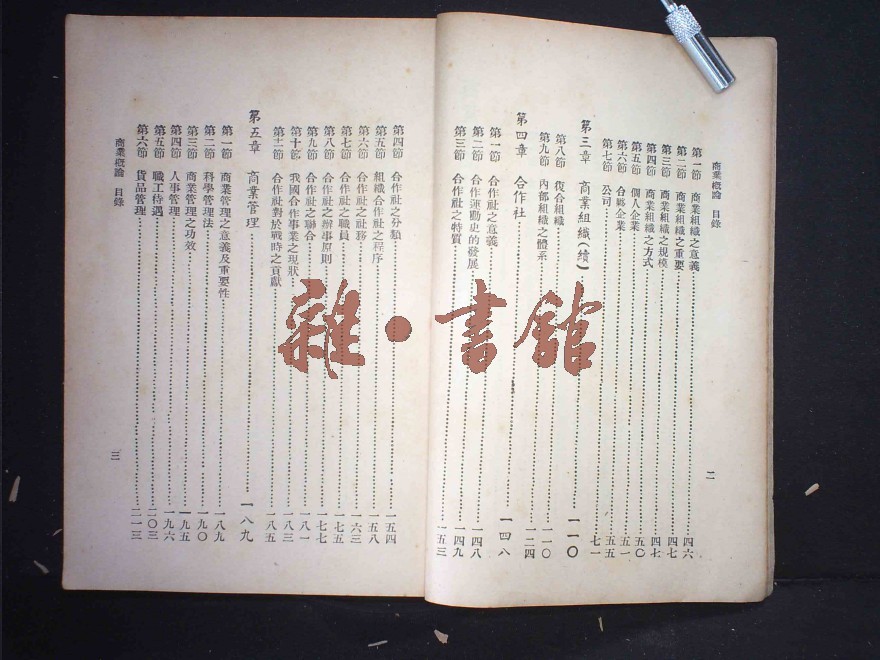 商業概論　目錄
二
第一節　商業組織之意義……四六
第二節　商業組織之重要……四七
第三節　商業組織之規模……四七
第四節　商業組織之方式……五〇
第五節　個人企業……五一
第六節　合夥企業……五五
第七節　公司……七一
第三章　商業組織(續)……一一〇
第八節　復合組織……一一〇
第九節　內部組織之體系……一二四
第四章　合作社……一四八
第一節　合作社之意義……一四八
第二節　合作運動史的發展……一四九
第三節　合作社之特質……一五三
第四節　合作社之分類……一五四
第五節　組織合作社之程序……一五八
第六節　合作社之社務……一六三
第七節　合作社之職員……一七五
第八節　合作社之辦事原則……一七七
第九節　合作社之聯合……一八一
第十節　我國合作事業之現狀……一八三
第十一節　合作社對於戰時之貢獻……一八五
第五章　商業管理……一八九
第一節　商業管理之意義及重要性……一八九
第二節　科學管理法……一九〇
第三節　商業管理之功效……一九五
第四節　人事管理……一九六
第五節　職工待遇……二〇三
第六節　貨品管理……二一三
商業概論　目錄
三
雜·書館